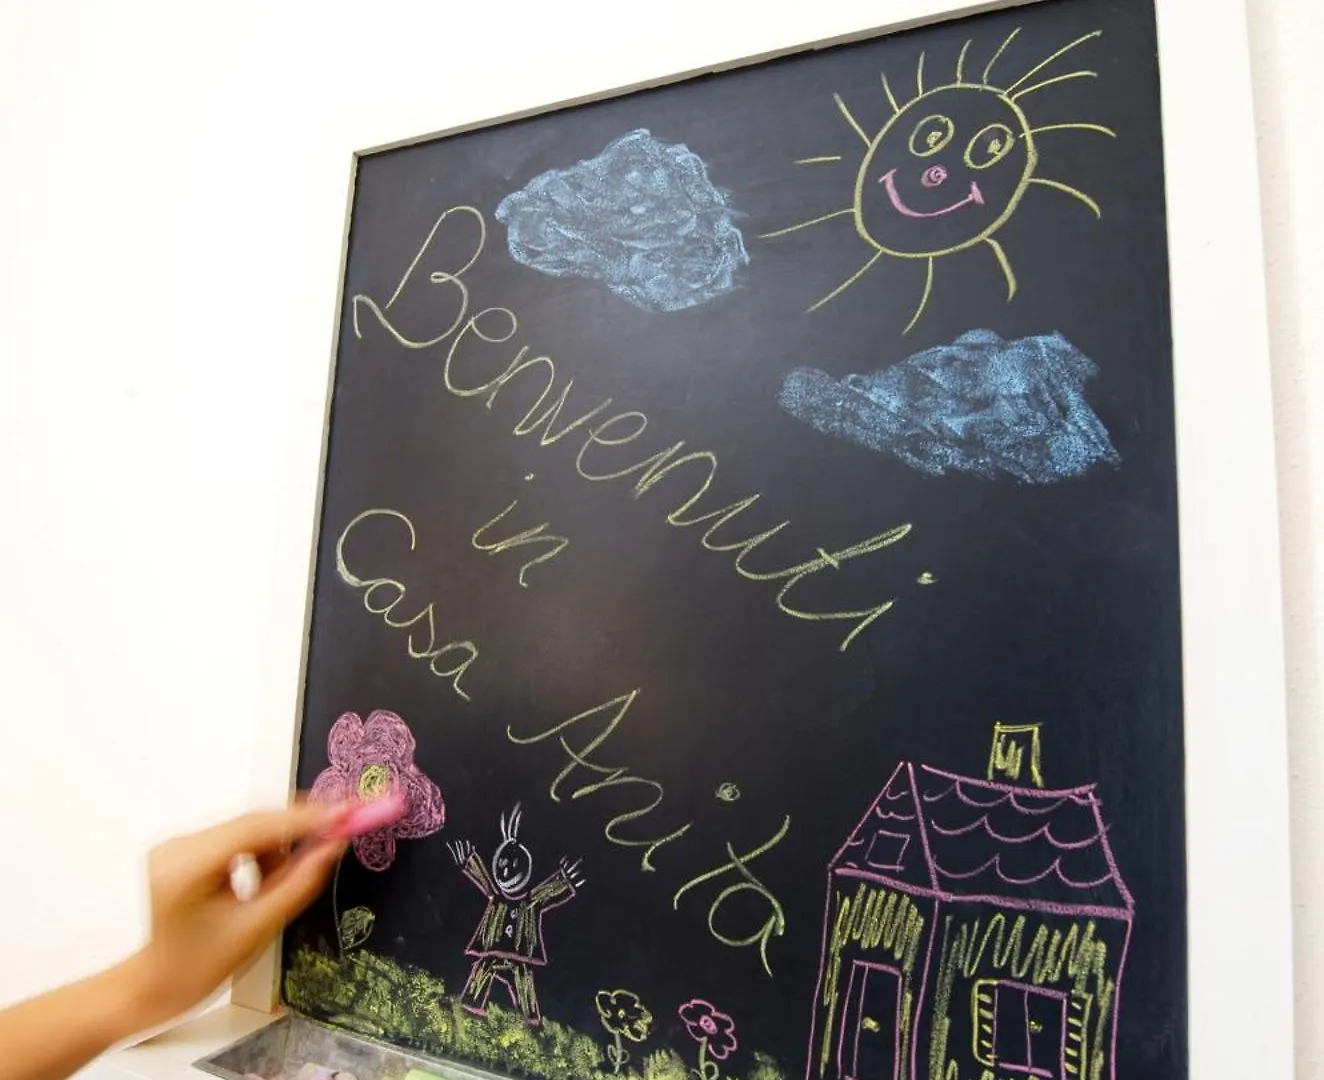 Benvenuti
in
Casa
Anita